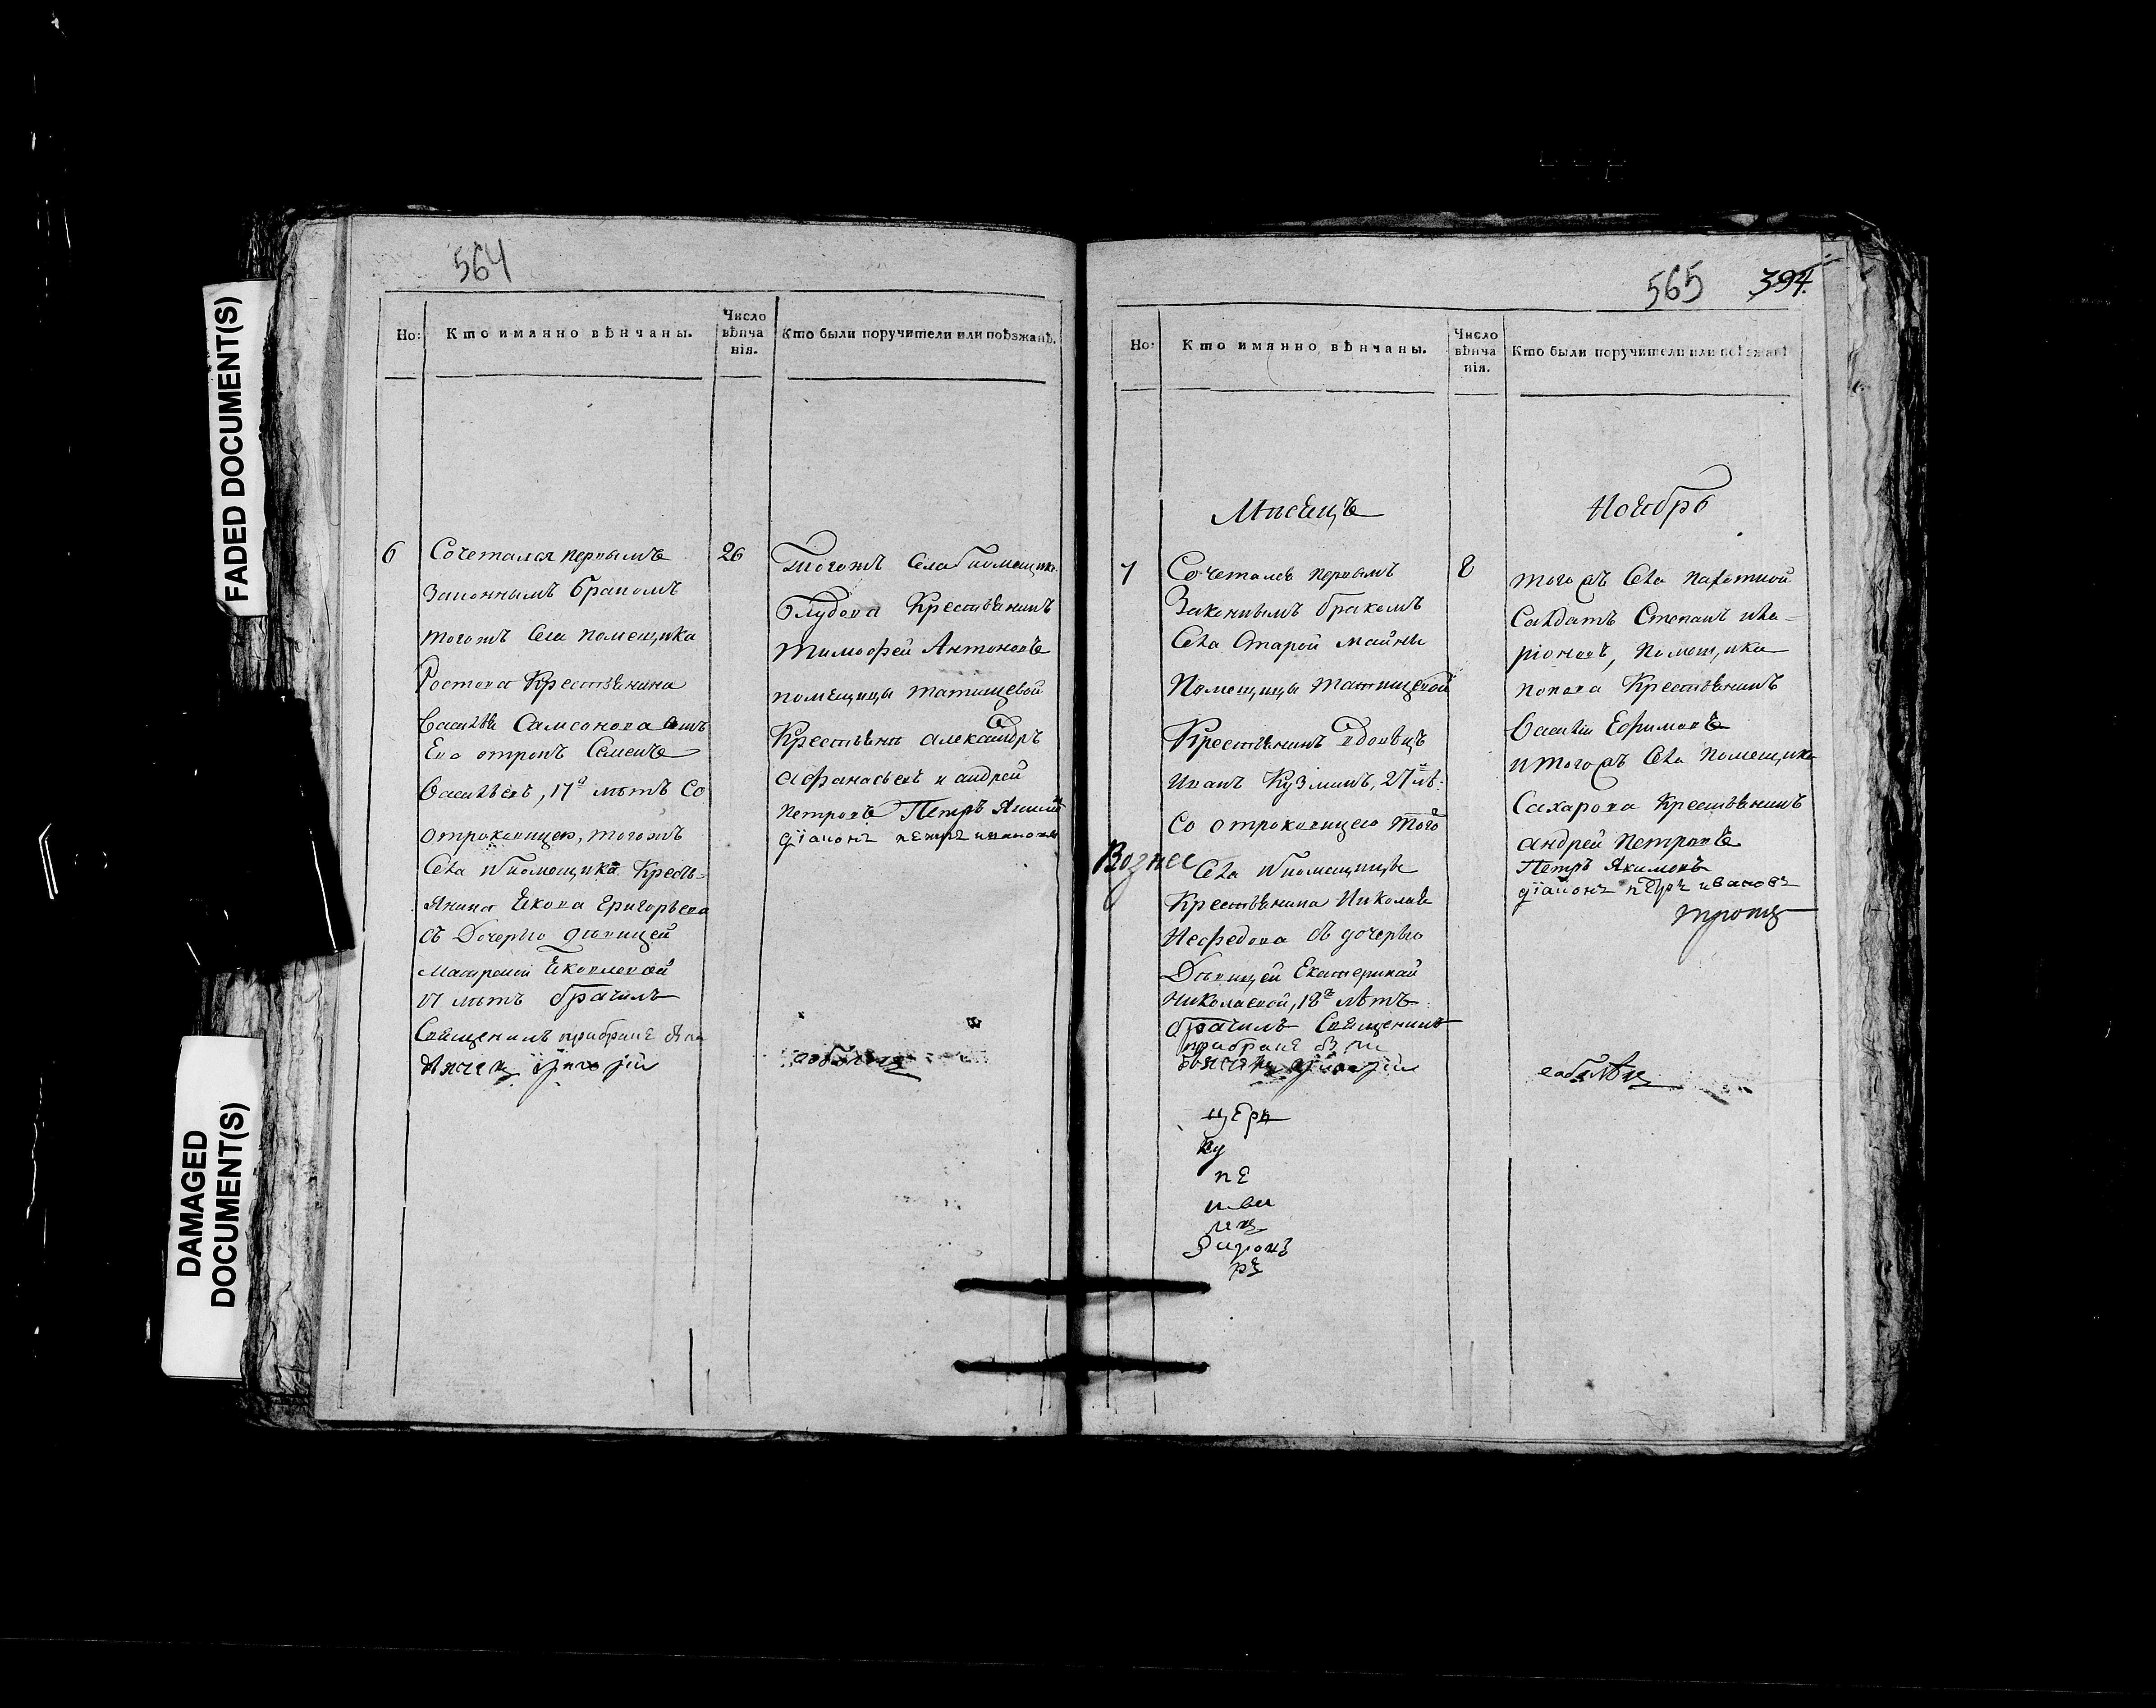 FADED DOCUMENT(S)
DAMAGED
DOCUMENT(S)
564
Но:
Кто имянно вѣнчаны.
Число
вѣнча
нія.
Кто были поручители или поѣзжанѣ.
6
Сочетался первымъ
Законнымъ бракомъ
тогожъ Села помещика
Ростова Крестьянина
Василья Самсонова
Его отрокъ Семенъ
Васильевъ, 17 лѣтъ Со
отроковицею, тогожъ
Села помещика Кресть=
янина Якова Григорьева
съ Дочерью девицей
Матроной Яковлевой
17 лѣтъ брачилъ
Священикъ
26
Тогожъ Села помещика
Глудова Крестьянинъ
Тимофей Антоновъ
помещицы Татищевой
Крестьянъ Александръ
Афанасьевъ и андрей
Петровъ Петръ Якимов
діаконъ петръ ивановъ
565 394.
Но:
Кто имянно вѣнчаны.
Число
вѣнча
нія.
Кто были поручители или поѣзжанѣ
Месецъ
Ноябрь
7
Сочетался первымъ
Законнымъ бракомъ
Села Старой Майны
Помещицы Татищевой
Крестьянинъ вдовецъ
Иванъ Кузминъ, 27 лѣ:
Со отроковицею того
Вознес
Села помещицы
Крестьянина Николая
Нефедова съ дочерью
Девицей Екатериной
Николаевой, 18 лѣтъ
брачилъ Священикъ
церк
ву
пе
8
того жъ Села пахотной
Салдатъ Степанъ ила=
ріоновъ, помещика
попова Крестьянинъ
Василей Ефимовъ
и того жъ Села помещика
Сахарова Крестьянинъ
андрей Петровъ
Петръ Якимовъ
діаконъ петръ ивановъ